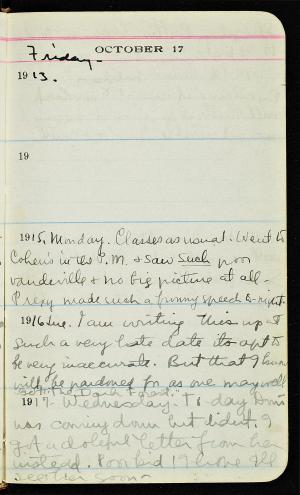 OCTOBER 17
Friday -
1913.
19
1915, Monday. Classes as usual. Went to
Cohen's in the P.M. & saw such poor
vaudeville & no big picture at all -
Prexy made such a funny speech to-night.
1916 Tue. I am writing this up at
such a very late date its apt to
be very inaccurate. But that I know
will be pardoned for as one may well
1917 - Wednesday. To-day
was coming down but didn't. I
got a doleful letter from her
instead. Poor kid! I hope I'll
see her soon -